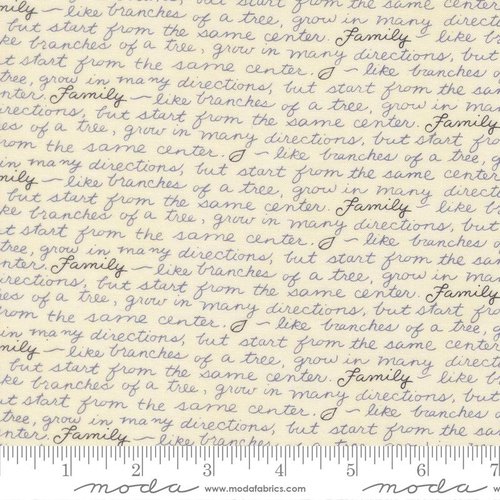 mily — like branches of a tree, grow in many direct
but start from the same center. Family — like b
ke branches of a tree, grow in many directions, but
t start from the same center. — like branches o
tree, grow in many directions, but start from the sam
nter. Family — like branches of a tree, grow in man
rections, but start from the same center. Family
es of a tree, grow in many directions, but start fro
rom the same center. — like branches of a tree, g
in many directions, but start from the same cente
mily — like branches of a tree, grow in many direct
but start from the same center. Family — like b
ke branches of a tree, grow in many directions, but
t start from the same center. — like branches o
tree, grow in many directions, but start from the sam
nter. Family — like branches of a tree, grow in man
rections, but start from the same center. Family
es of a tree, grow in many directions, but start fro
rom the same center. — like branches of a tree, g
in many directions, but start from the same cente
mily — like branches of a tree, grow in many direct
but start from the same center. Family — like b
ke branches of a tree, grow in many directions, but
t start from the same center. — like branches o
tree, grow in many directions, but start from the sam
nter. Family — like branches
1 2 3 4 5 6 7
moda www.modafabrics.com moda